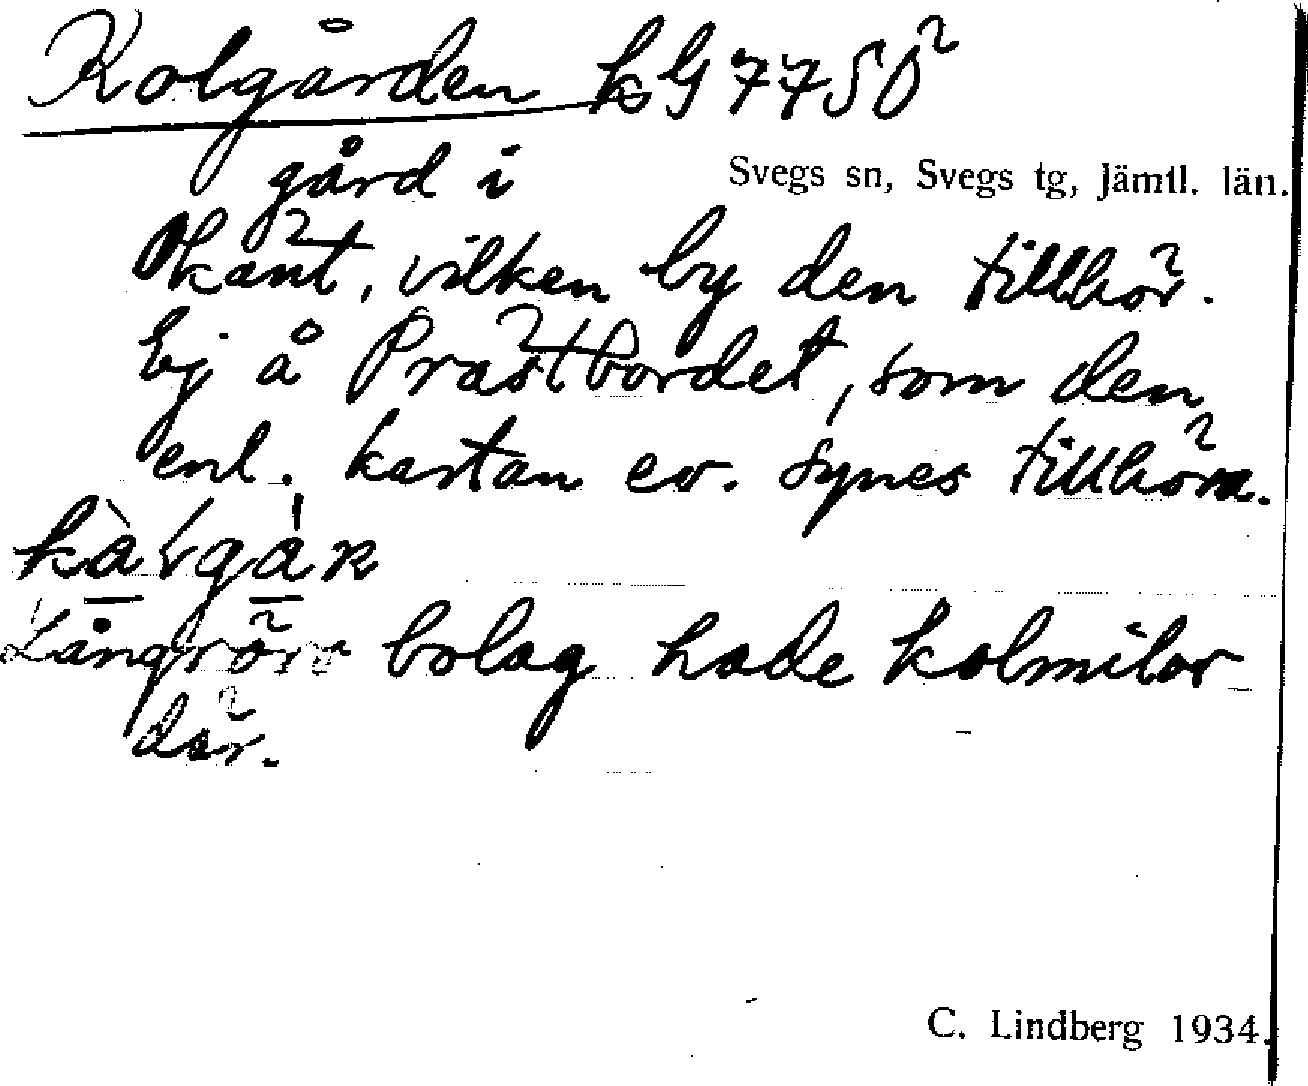 Kolgården kG 7750
gård i Svegs sn, Svegs tg, Jämtl. län.
Okänt, vilken by den tillhör.
Ej å Prästbordet, som den
enl. kartan ev. synes tillhöra.
Långrörs bolag hade kolmilor
där.
C. Lindberg 1934.